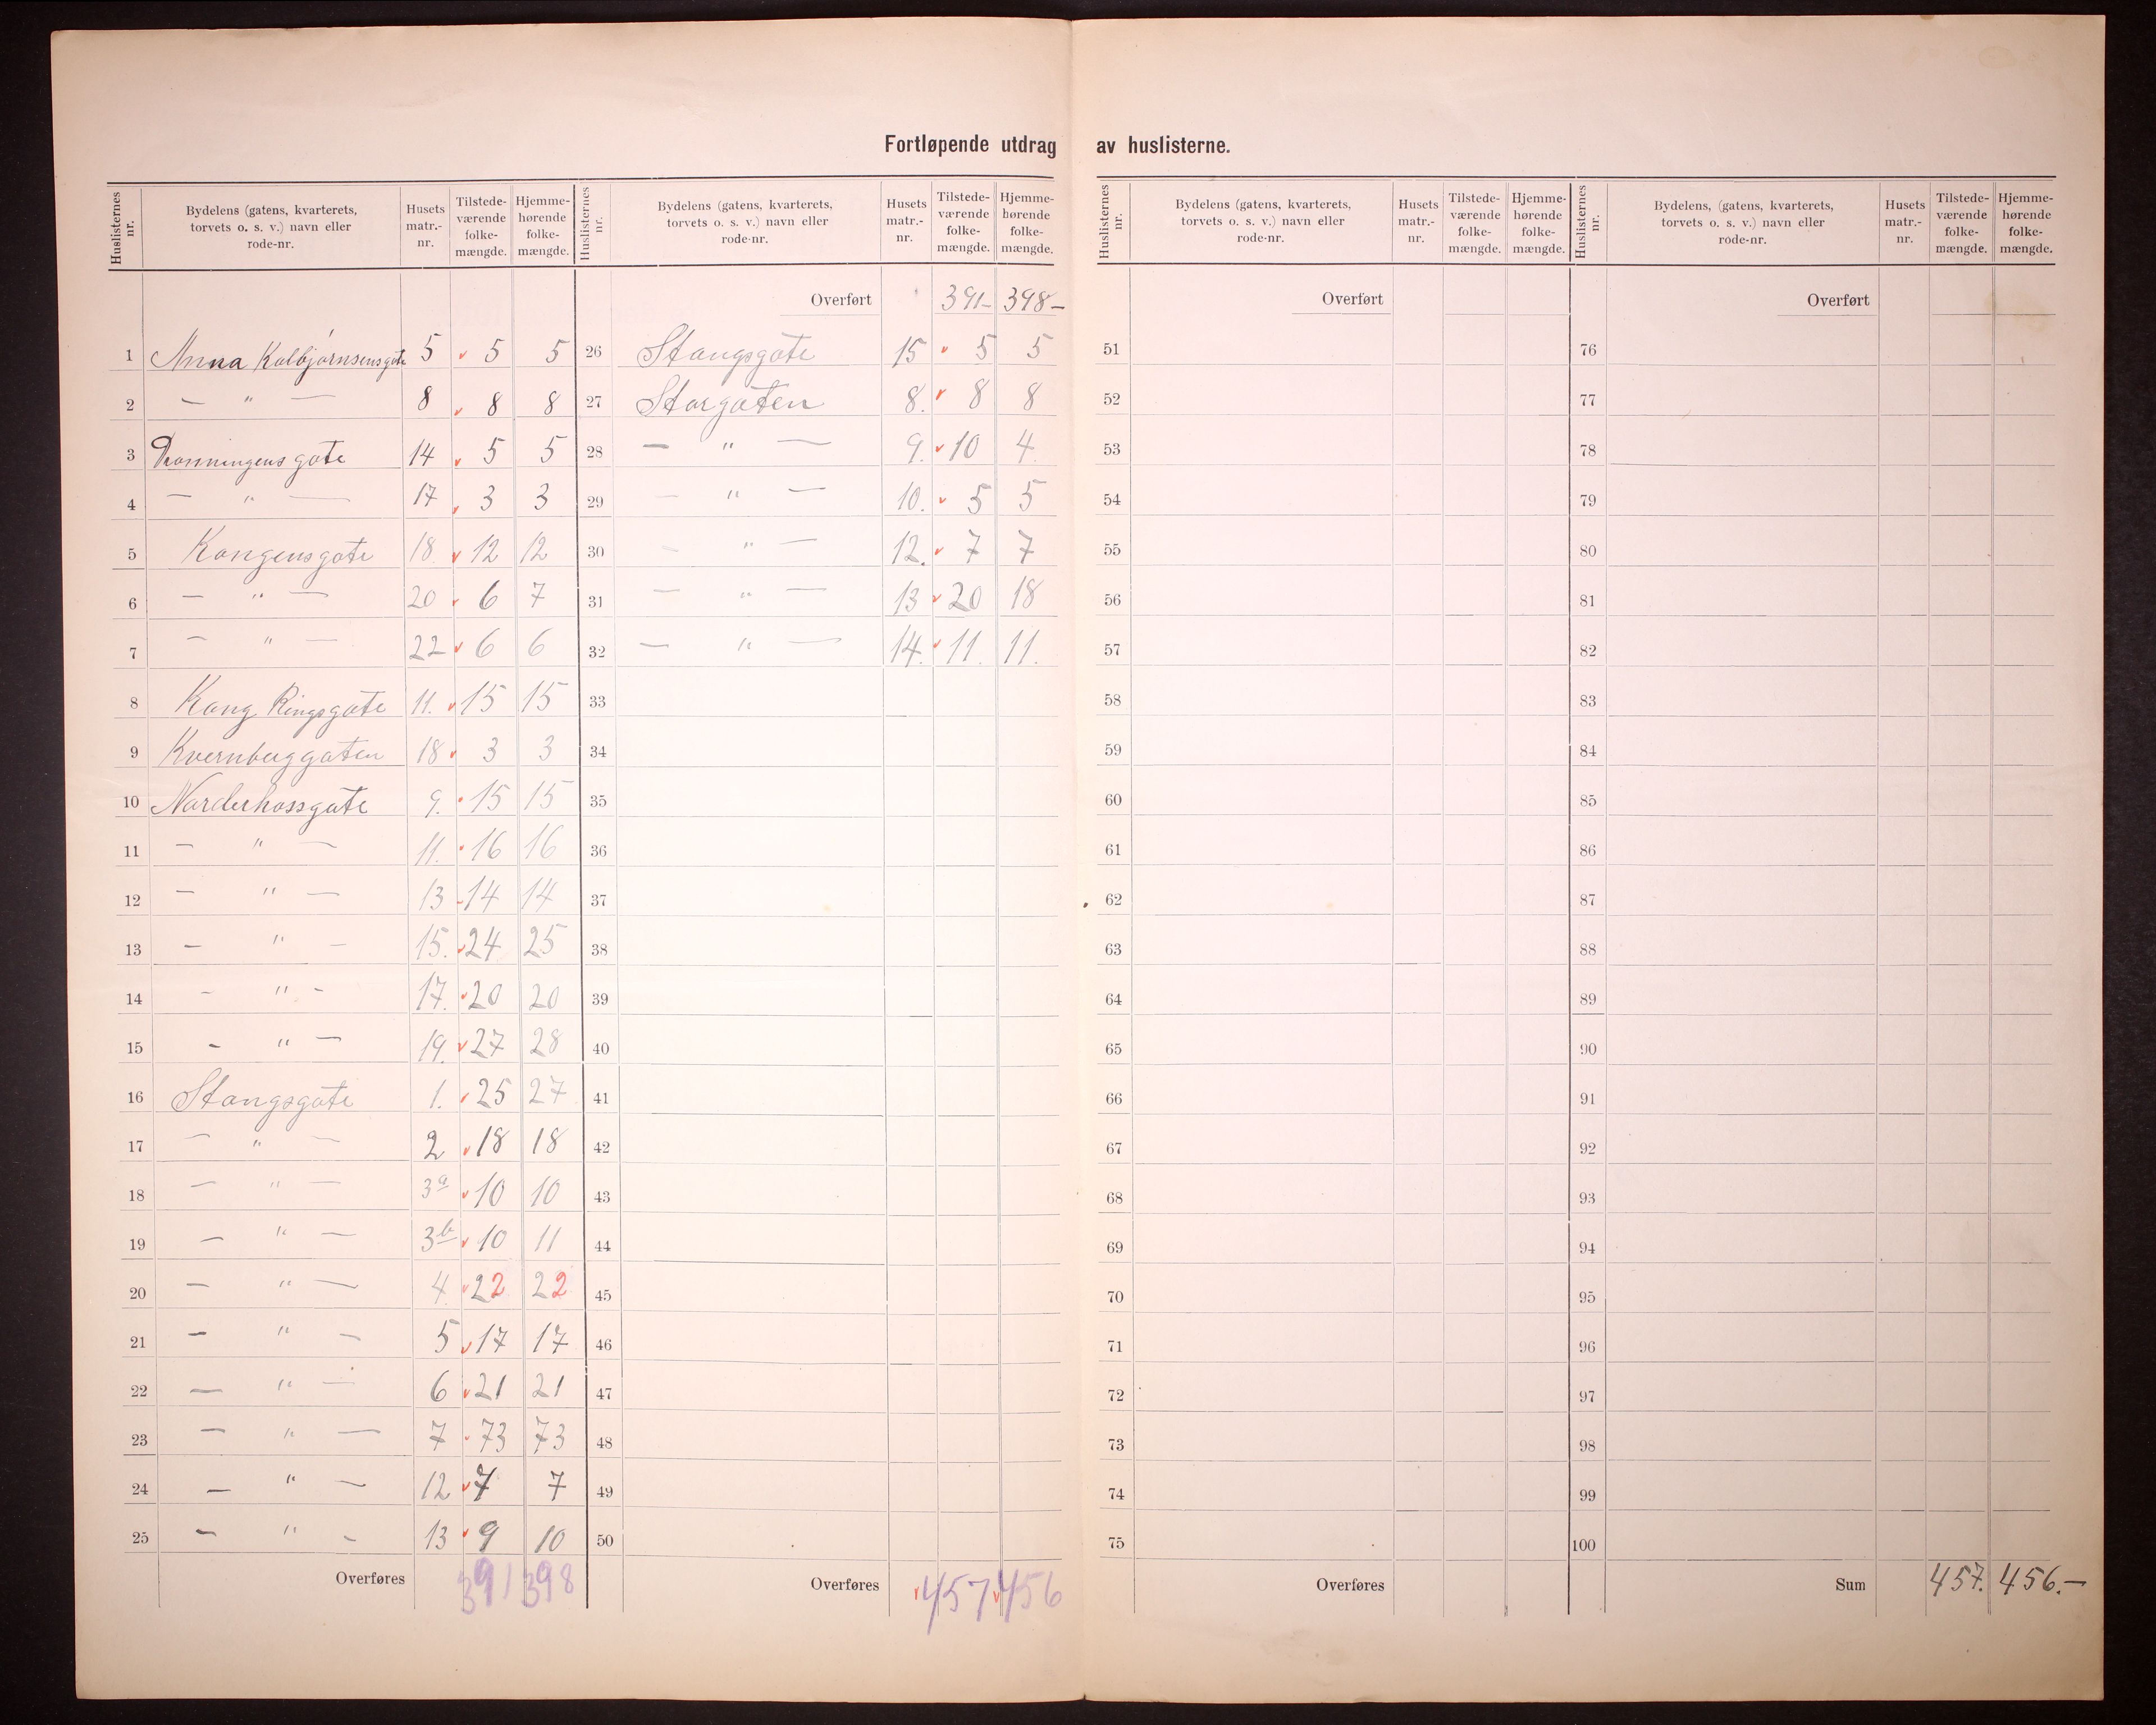 Fortløpende utdrag av huslisterne.
Huslisternes nr. | Bydelens (gatens, kvarterets, torvets o. s. v.) navn eller rode-nr. | Husets matr.-nr. | Tilstede-værende folke-mængde. | Hjemme-hørende folke-mængde.
1 Anna Kolbjørnsensgate 5 5 5
2 — " — 8 8 8
3 Dronningens gate 14 5 5
4 — " — 17 3 3
5 Kongensgate 18 12 12
6 — " — 20 6 7
7 — " — 22 6 6
8 Kong Ringsgate 11. 15 15
9 Kvernberggaten 18 3 3
10 Norderhovsgate 9. 15 15
11 — " — 11. 16 16
12 — " — 13 14 14
13 — " — 15. 24 25
14 — " — 17. 20 20
15 — " — 19. 27 28
16 Stangsgate 1. 25 27
17 — " — 2 18 18
18 — " — 3a 10 10
19 — " — 3b 10 11
20 — " — 4. 22 22
21 — " — 5 17 17
22 — " — 6 21 21
23 — " — 7 73 73
24 — " — 12 7 7
25 — " — 13 9 10
Overføres 391 398
Huslisternes nr. | Bydelens (gatens, kvarterets, torvets o. s. v.) navn eller rode-nr. | Husets matr.-nr. | Tilstede-værende folke-mængde. | Hjemme-hørende folke-mængde.
Overført 391- 398-
26 Stangsgate 15 5 5
27 Storgaten 8. 8 8
28 — " — 9. 10 4
29 — " — 10. 5 5
30 — " — 12. 7 7
31 — " — 13 20 18
32 — " — 14. 11. 11.
33
34
35
36
37
38
39
40
41
42
43
44
45
46
47
48
49
50
Overføres 457 456
Huslisternes nr. | Bydelens (gatens, kvarterets, torvets o. s. v.) navn eller rode-nr. | Husets matr.-nr. | Tilstede-værende folke-mængde. | Hjemme-hørende folke-mængde.
Overført
51
52
53
54
55
56
57
58
59
60
61
62
63
64
65
66
67
68
69
70
71
72
73
74
75
Overføres
Huslisternes nr. | Bydelens, (gatens, kvarterets, torvets o. s. v.) navn eller rode-nr. | Husets matr.-nr. | Tilstede-værende folke-mængde. | Hjemme-hørende folke-mængde.
Overført
76
77
78
79
80
81
82
83
84
85
86
87
88
89
90
91
92
93
94
95
96
97
98
99
100
Sum 457. 456.-